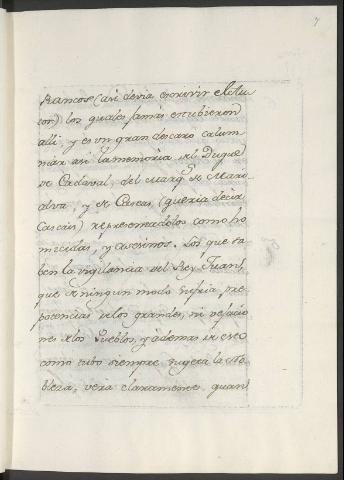 7
Rancos (asi devia escrivir el Au
tor) los quales jamás estubieron
alli, y es un gran descaro calum
niar asi la memória del Duque
de Cadaval, del Marq.s de Mari
alva, y de Caseas, (queria decir
Cascais) representadolos como ho
micidas, y asesinos. Los que sa
ben la vigilancia del Rey Juan,
que de ningun modo sufria, pre
potencias de los grandes, ni vejacio
nes de los Pueblos, y ademas de eso
como tubo siempre sugeta la No
bleza, vera claramente quan